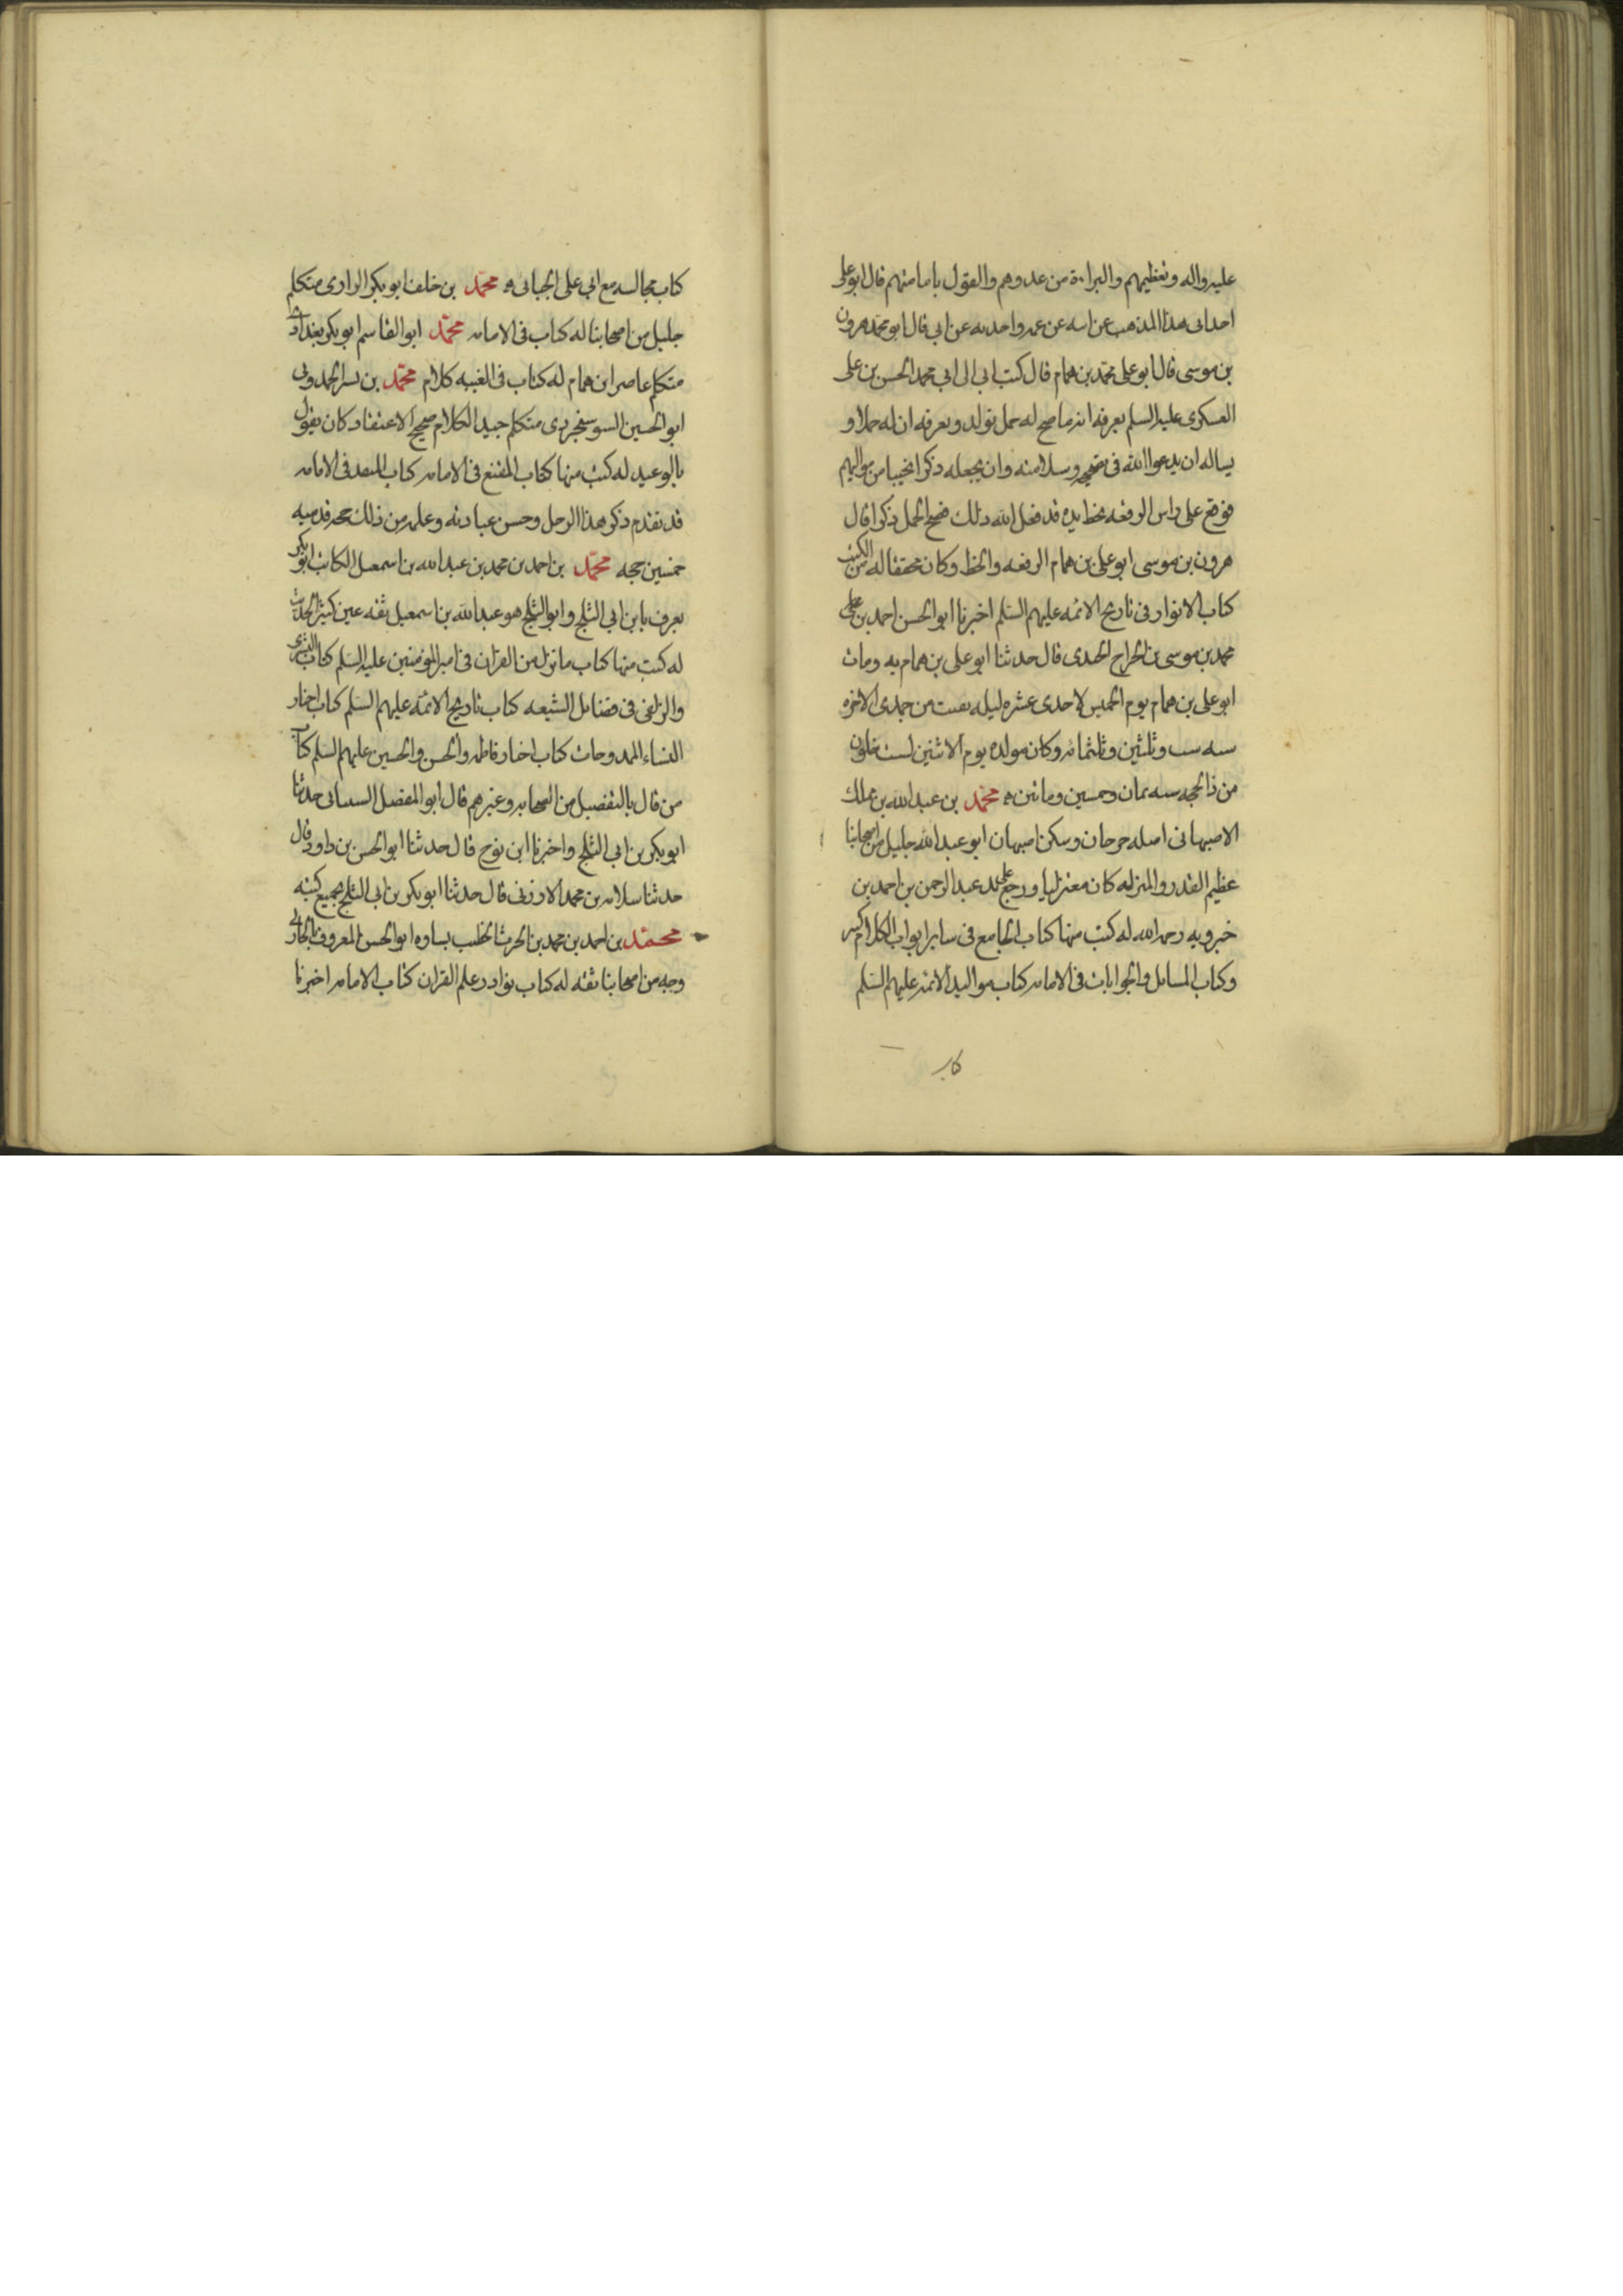 عليه واله وتعظيمهم والبراءة من عدوهم والقول بامامتهم قال ابو على
اخذ ابى هذا المذهب عن ابيه عن عمه واخذته عن ابى قال ابو محمد هرون
بن موسى قال ابو على محمد بن همام قال كتب ابى الى ابى محمد الحسن بن على
العسكرى عليه السلم يعرفه انه ما صح له حمل بولد ويعرفه ان له حملا و
يساله ان يدعو الله فى تصحيحه وسلامته وان يجعله ذكرا نجيبا من مواليهم
فوقع على راس الرقعه بخط يده قد فعل الله ذلك فصح الحمل ذكرا قال
هرون بن موسى ابو على بن همام الرقعه والخط وكان محققا له من الكتب
كتاب الانوار فى تاريخ الائمه عليهم السلم اخبرنا ابو الحسن احمد بن
محمد بن موسى بن الجراح الجندى قال حدثنا ابو على بن همام به ومات
ابو على بن همام يوم الخميس لاحدى عشره ليله بقيت من جمدى الاخره
سنه ست وثلثين وثلثمائه وكان مولده يوم الاثنين لست خلون
من ذالحجه سنه ثمان وخمسين ومائتين محمد بن عبد الله بن مملك
الاصبهانى اصله جرجان وسكن اصبهان ابو عبد الله جليل من اصحابنا
عظيم القدر والمنزله كان معتزليا ورجع على يد عبد الرحمن بن احمد بن
خبرويه رحمه الله له كتب منها كتاب الجامع فى ساير ابواب الكلام كبير
وكتاب المسائل والجوابات فى الامامه كتاب مواليد الائمه عليهم السلم
كتاب
كتاب مجالسه مع ابى على الجبائى محمد بن خلف ابو بكر الرازى متكلم
جليل من اصحابنا له كتاب فى الامامه محمد ابو القاسم ابو بكر بغدادى
متكلم عاصر ابن همام له كتاب فى الغيبه كلام محمد بن بشر الحمدونى
ابو الحسين السوسنجردى متكلم جيد الكلام صحيح الاعتقاد كان يقول
بالوعيد له كتب منها كتاب المقنع فى الامامه كتاب المنقذ فى الامامه
قد تقدم ذكر هذا الرجل وحسن عبادته وعلمه من ذلك حج على قدميه
خمسين حجه محمد بن احمد بن محمد بن عبد الله بن اسمعيل الكاتب ابو بكر
يعرف بابن ابى الثلج وابو الثلج هو عبد الله بن اسمعيل ثقه عين كثير الحديث
له كتب منها كتاب ما نزل من القران فى امير المؤمنين عليه السلم كتاب البشرى
والزلفى فى فضائل الشيعه كتاب تاريخ الائمه عليهم السلم كتاب اخبار
النساء الممدوحات كتاب اخبار فاطمه والحسن والحسين عليهم السلم كتاب
من قال بالتفضيل من الصحابه وغيرهم قال ابو المفضل الشيبانى حدثنا
ابو بكر بن ابى الثلج واخبرنا ابن نوح قال حدثنا ابو الحسن بن داود قال
حدثنا سلامه بن محمد الارزنى قال حدثنا ابو بكر بن ابى الثلج بجميع كتبه
محمد بن احمد بن محمد بن الحرث الخطيب بساوه ابو الحسن المعروف بالحارثى
وجه من اصحابنا ثقه له كتاب نوادر علم القران كتاب الامامه اخبرنا